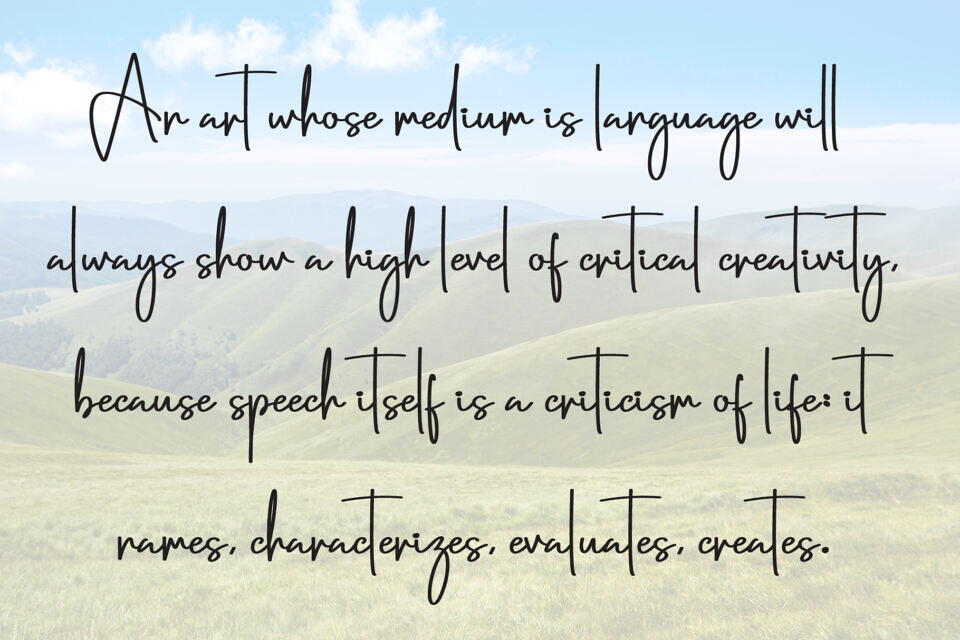 An art whose medium is language will
always show a high level of critical creativity,
because speech itself is a criticism of life: it
names, characterizes, evaluates, creates.